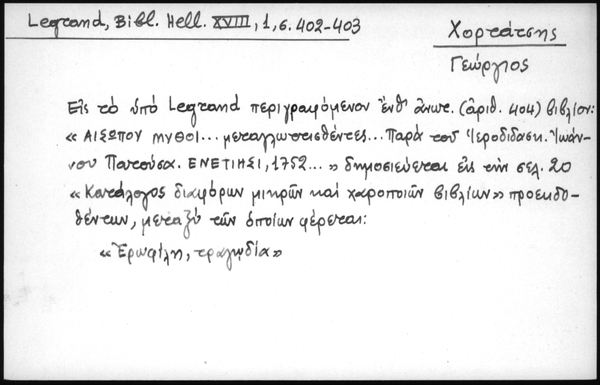 Legrand, Bibl. Hell. XVIII, 1, σ. 402-403
Χορτάτσης
Γεώργιος
Εἰς τὸ ὑπὸ Legrand περιγραφόμενον ἔνθ' ἀνωτ. (ἀριθ. 404) βιβλίον:
«ΑΙΣΩΠΟΥ ΜΥΘΟΙ... μεταγλωττισθέντες... Παρὰ τοῦ Ἱεροδιδασκ. Ἰωάν-
νου Πατούσα. ΕΝΕΤΙΗΣΙ, 1752...» δημοσιεύεται εἰς τὴν σελ. 20
«Κατάλογος διαφόρων μικρῶν καὶ χαροποιῶν βιβλίων» προεκδο-
θέντων, μεταξὺ τῶν ὁποίων φέρεται:
«Ἐρωφίλη, τραγῳδία»